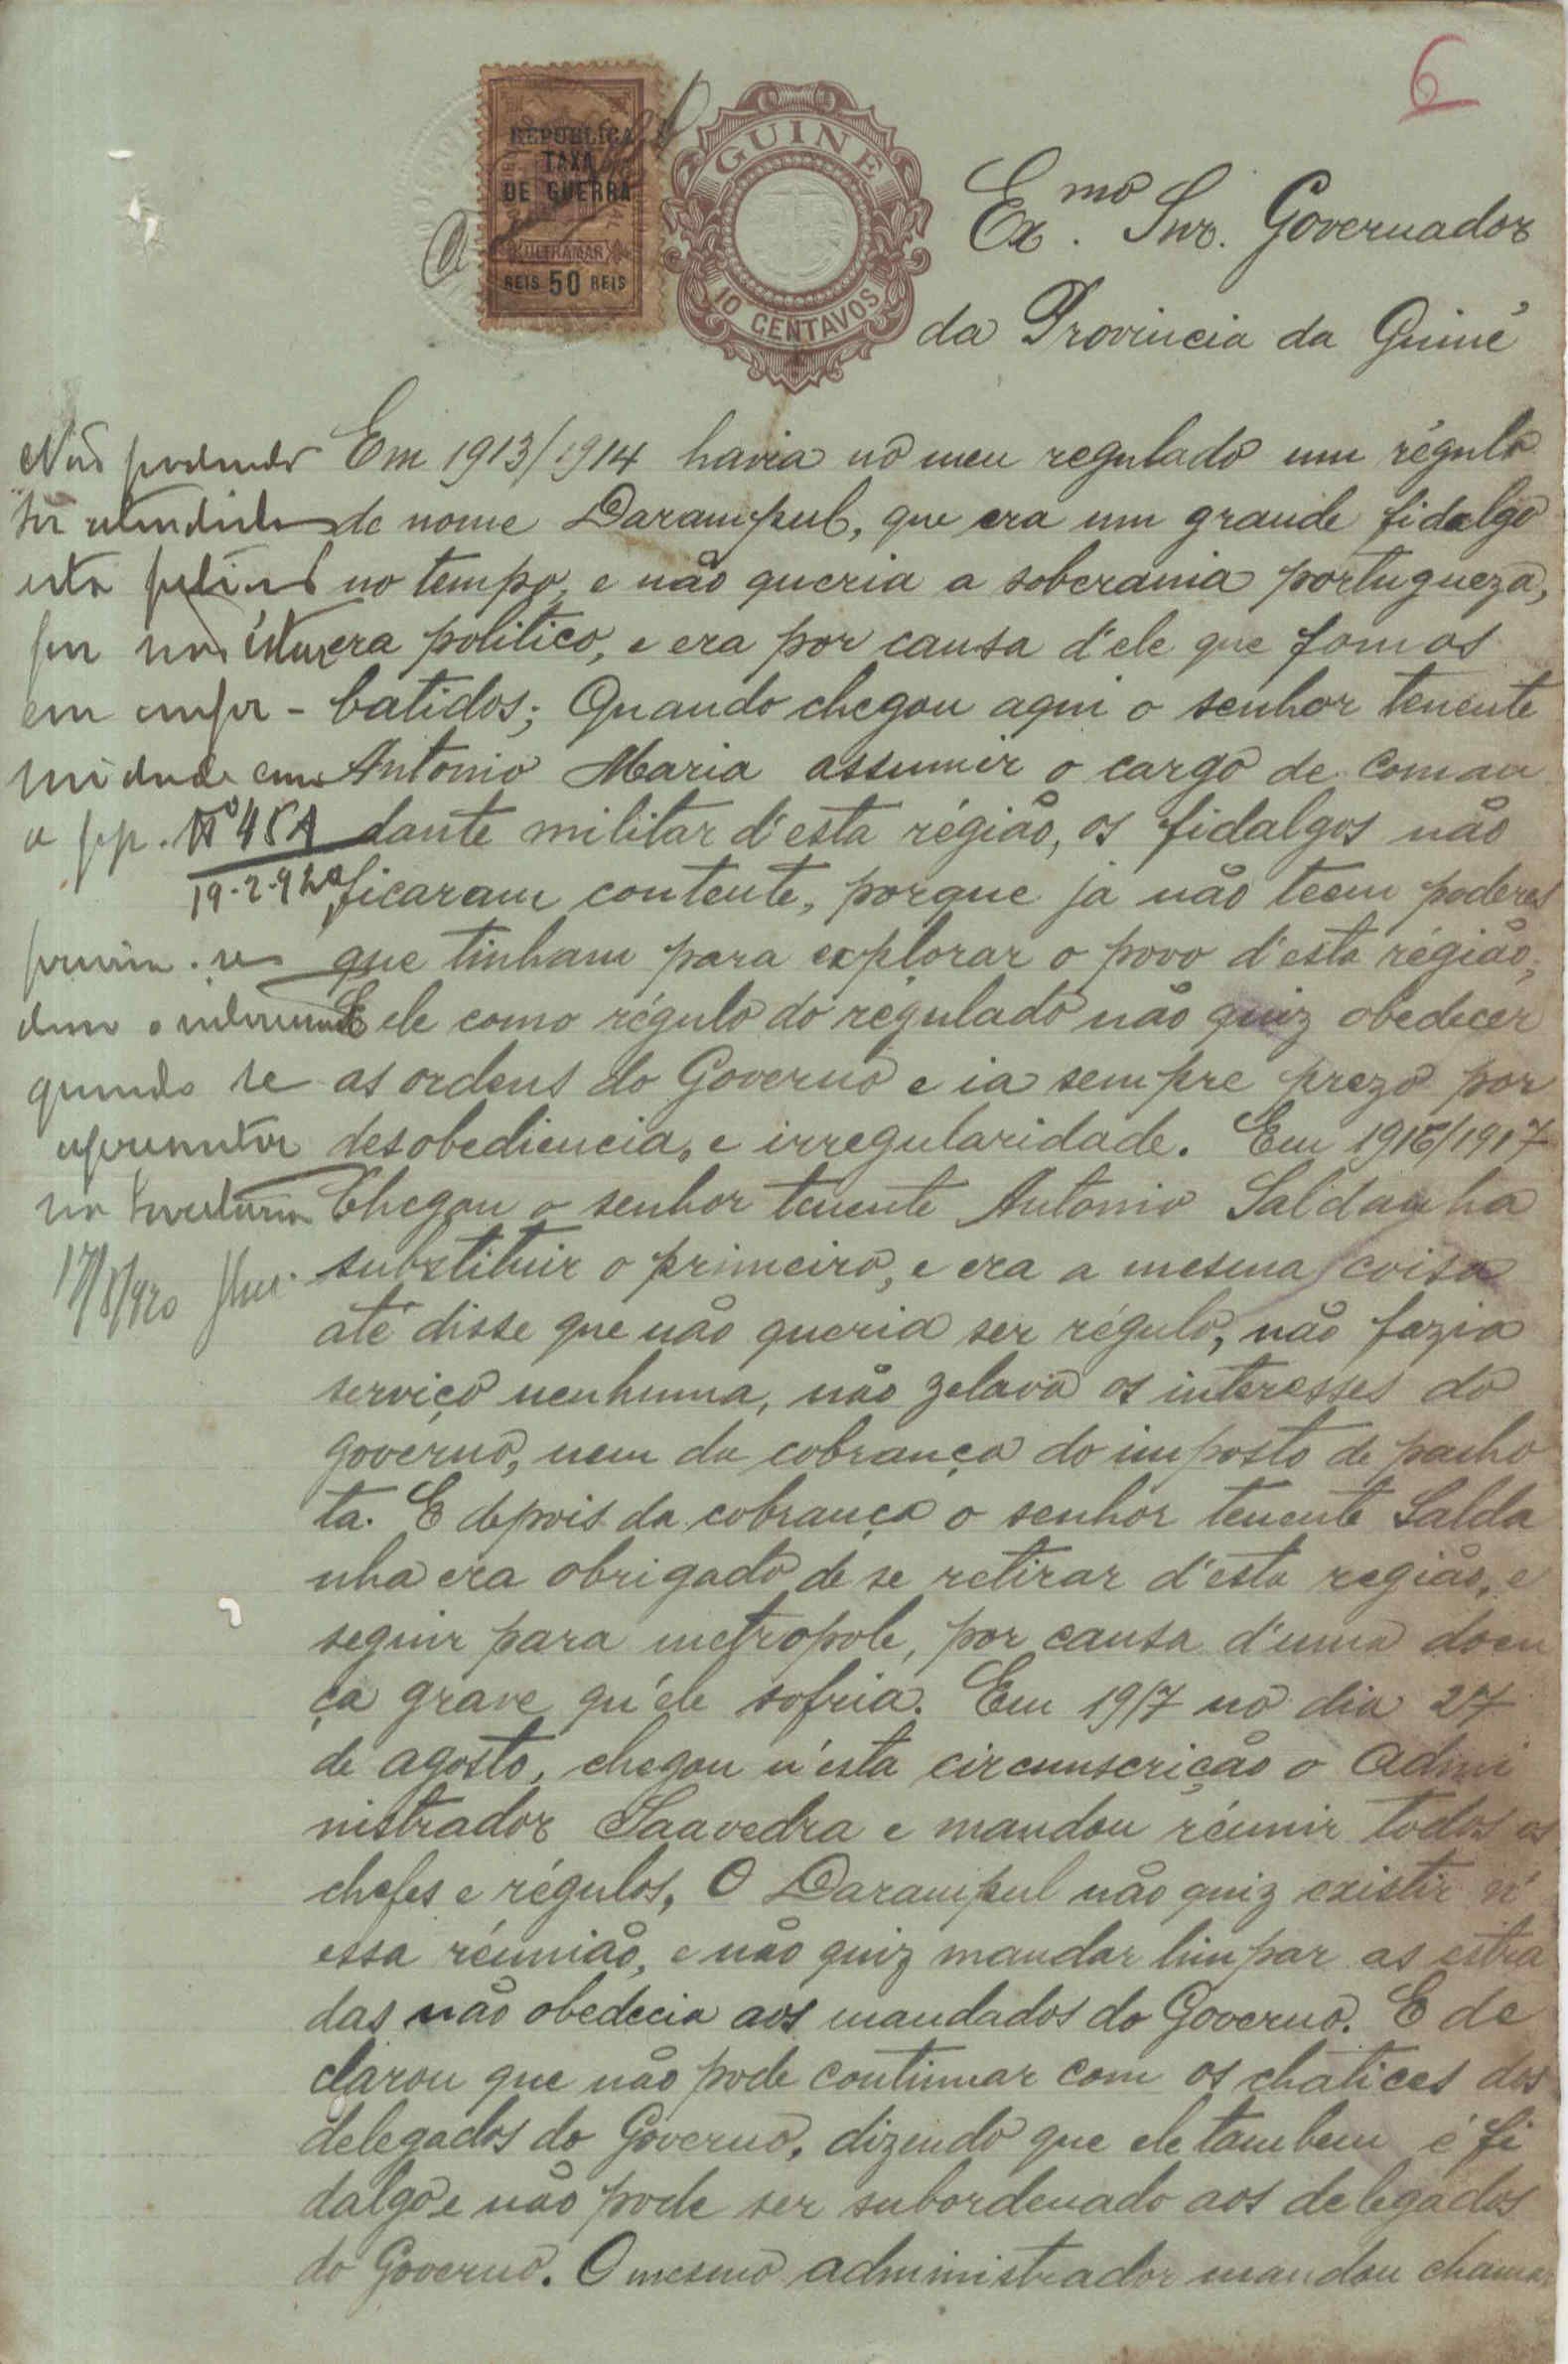 6
REPUBLICA
TAXA
DE GUERRA
ULTRAMAR
REIS 50 REIS
GUINÉ
10 CENTAVOS
Exmo. Snr. Governador
da Provincia da Guiné
Não podendo
ser atendida
esta petição
por não estar
em confor-
midade com
o sup. Nº 45A
19-2-920
previna-se
d'isso o interessado
quando se
apresentar
na Secretaria
17/8/920
Em 1913/1914 havia no meu regulado um régulo
de nome Darampul, que era um grande fidalgo
no tempo, e não queria a soberania portugueza,
era politico, e era por causa d'ele que fomos
batidos; Quando chegou aqui o senhor tenente
Antonio Maria assumir o cargo de coman
dante militar d'esta région, os fidalgos não
ficaram contente, porque ja não teem poderes
que tinham para explorar o povo d'esta région;
E ele como régulo do régulado não quiz obedecer
as ordens do Governo e ia sempre prezo por
desobediencia, e irregularidade. Em 1916/1917
Chegou o senhor tenente Antonio Saldanha
substituir o primeiro, e era a mesma coisa
até disse que não queria ser régulo, não fazia
serviço nenhuma, não zelava os interesses do
governo, nem da cobrança do imposto de palho
ta. E depois da cobrança o senhor tenente Salda
nha era obrigado de se retirar d'esta região, e
seguir para metropole, por causa d'uma doen
ça grave qu'ele sofria. Em 1917 no dia 27
de agosto, chegou n'esta circunscrição o Admi
nistrador Saavedra e mandou réunir todos os
chefes e régulos, O Darampul não quiz existir n'
essa réunião, e não quiz mandar limpar as estra
das não obedecia aos mandados do Governo. E de
clarou que não pode continuar com os chatices dos
delegados do Governo, dizendo que ele tambem é fi
dalgo e não pode ser subordenado aos delegados
do Governo. O mesmo administrador mandou chamar